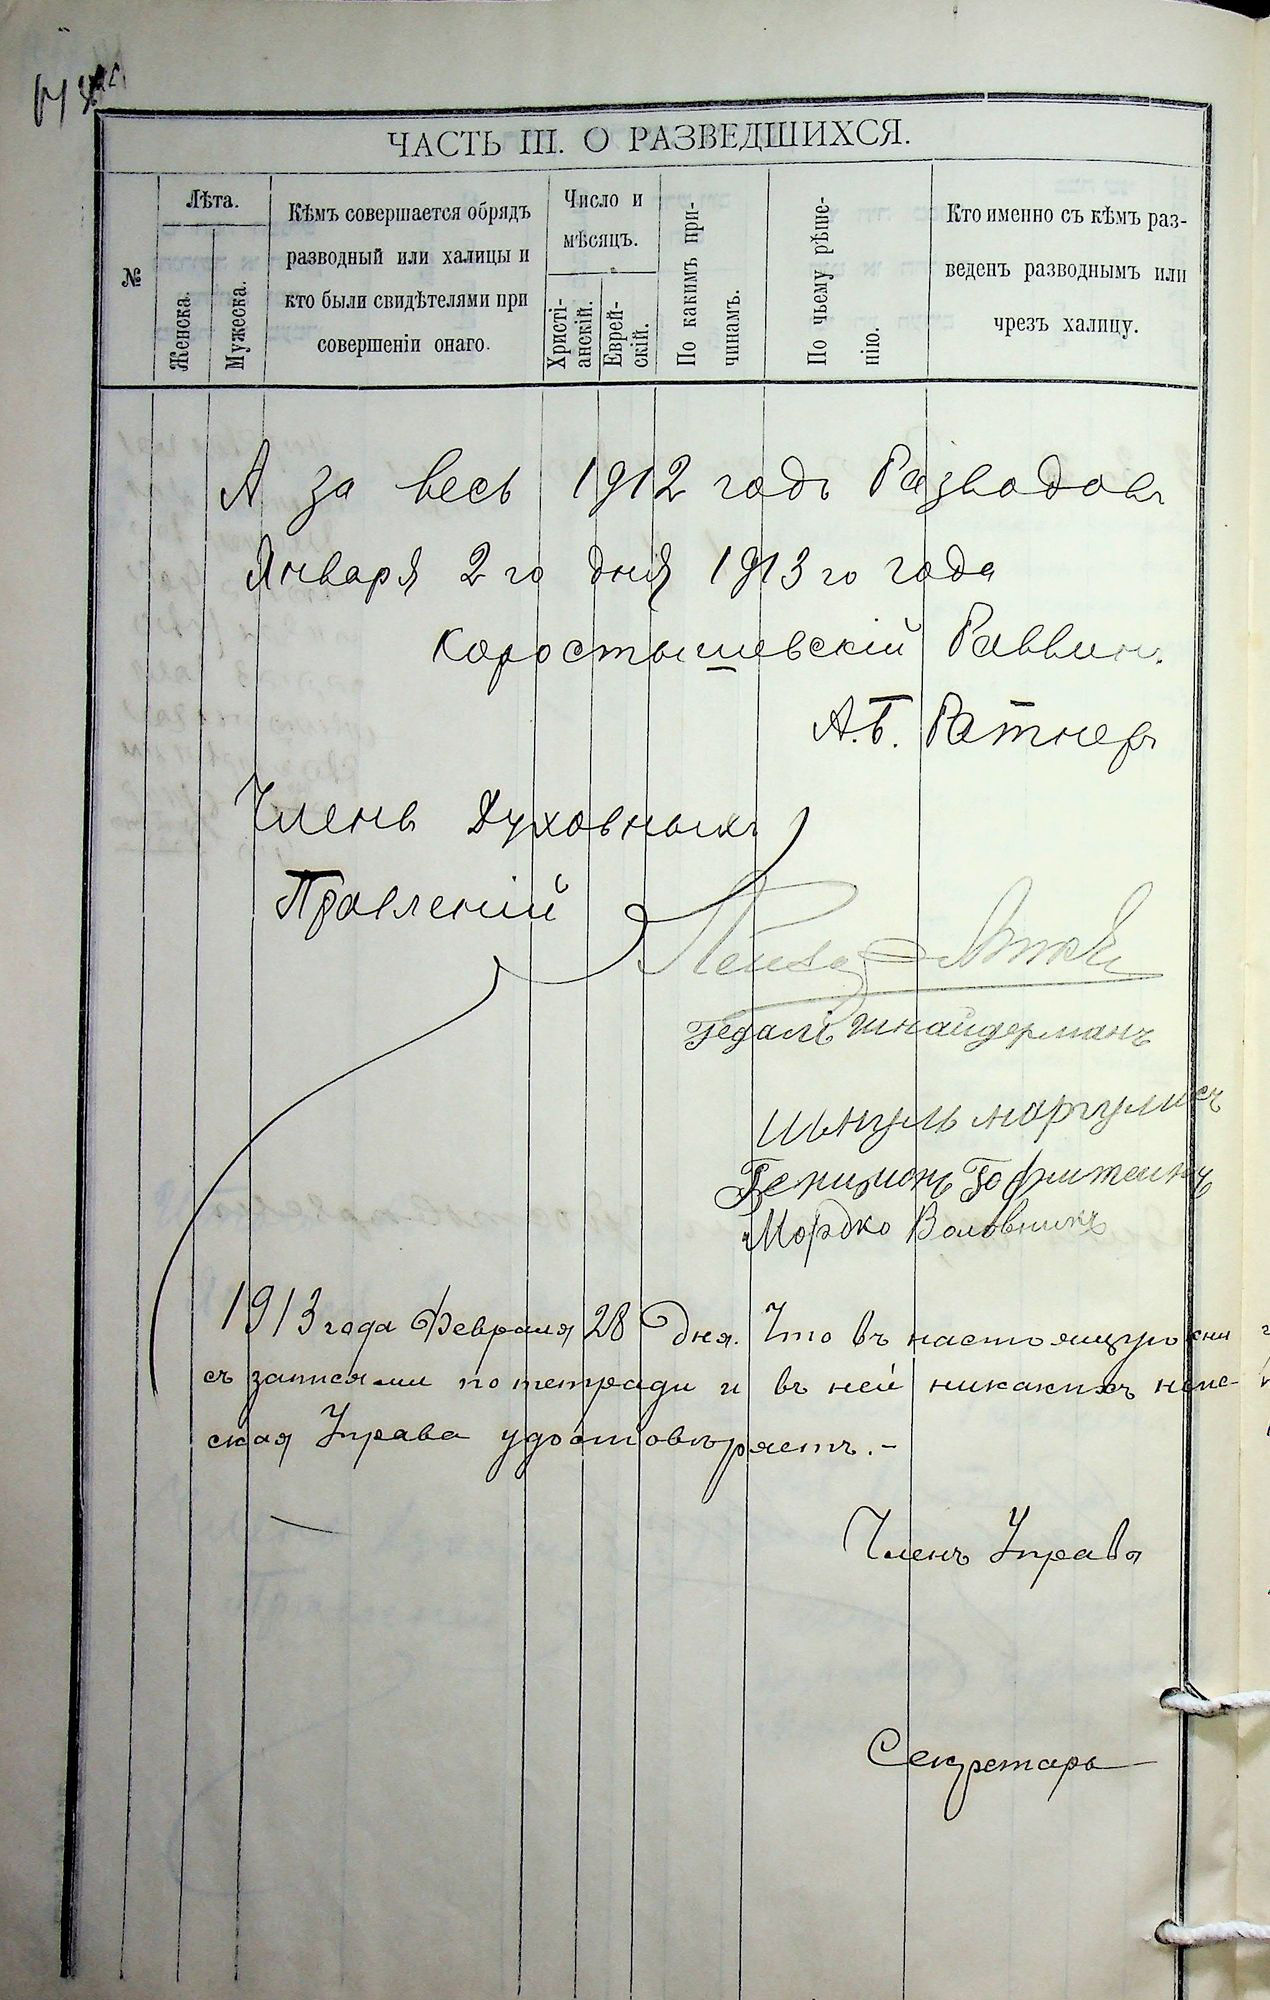 ЧАСТЬ III. О РАЗВЕДШИХСЯ.
№
Лѣта.
Женска.
Мужеска.
Кѣмъ совершается обрядъ
разводный или халицы и
кто были свидѣтелями при
совершеніи онаго.
Число и
мѣсяцъ.
Христі-
анскій.
Еврей-
скій.
По какимъ при-
чинамъ.
По чьему рѣше-
нію.
Кто именно съ кѣмъ раз-
веденъ разводнымъ или
чрезъ халицу.
А за весь 1912 годъ Разводовъ
Января 2го дня 1913го года
Коростышевскій Раввинъ
А.Б. Ратнеръ
Члены Духовныхъ
Правленій
Гедалъ Шнайдерманъ
маргулисъ
Бенционъ Гофштеинъ
Мордко Воловникъ
1913 года Февраля 28 дня. Что въ настоящую кни
съ записями по тетради и въ ней никакихъ непе-
ская Управа удостовѣряетъ.-
Членъ Управы
Секретарь